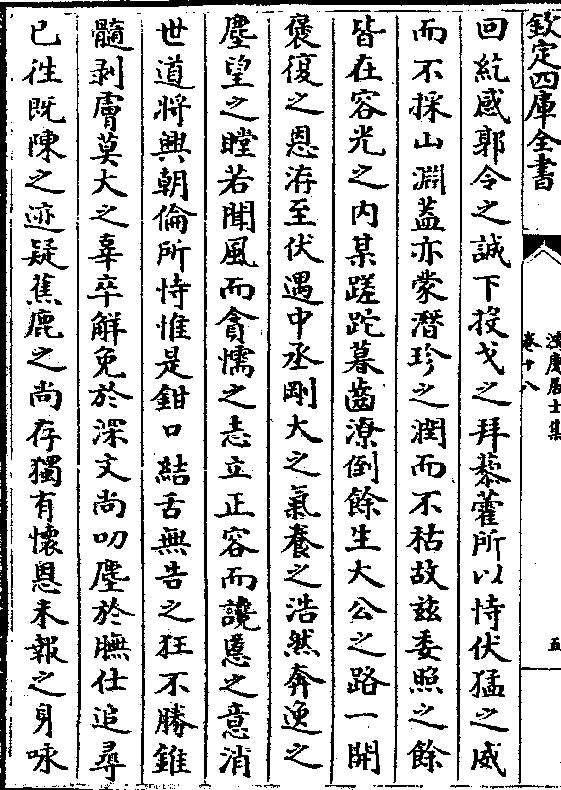 欽定四庫全書
鴻慶居士集
卷十八
五
回紇感郭令之誠下投戈之拜藜藿所以恃伏猛之威
而不採山淵蓋亦蒙潛珍之潤而不枯故茲委照之餘
皆在容光之内某蹉跎暮齒潦倒餘生大公之路一開
褒復之恩洊至伏遇中丞剛大之氣養之浩然奔逸之
塵望之瞠若聞風而貪懦之志立正容而讒慝之意消
世道將興朝倫所恃惟是鉗口結舌無告之狂不勝錐
髓剥膚莫大之辜卒解免於深文尚叨塵於膴仕追尋
已徃既陳之迹疑蕉鹿之尚存獨有懷恩未報之身咏